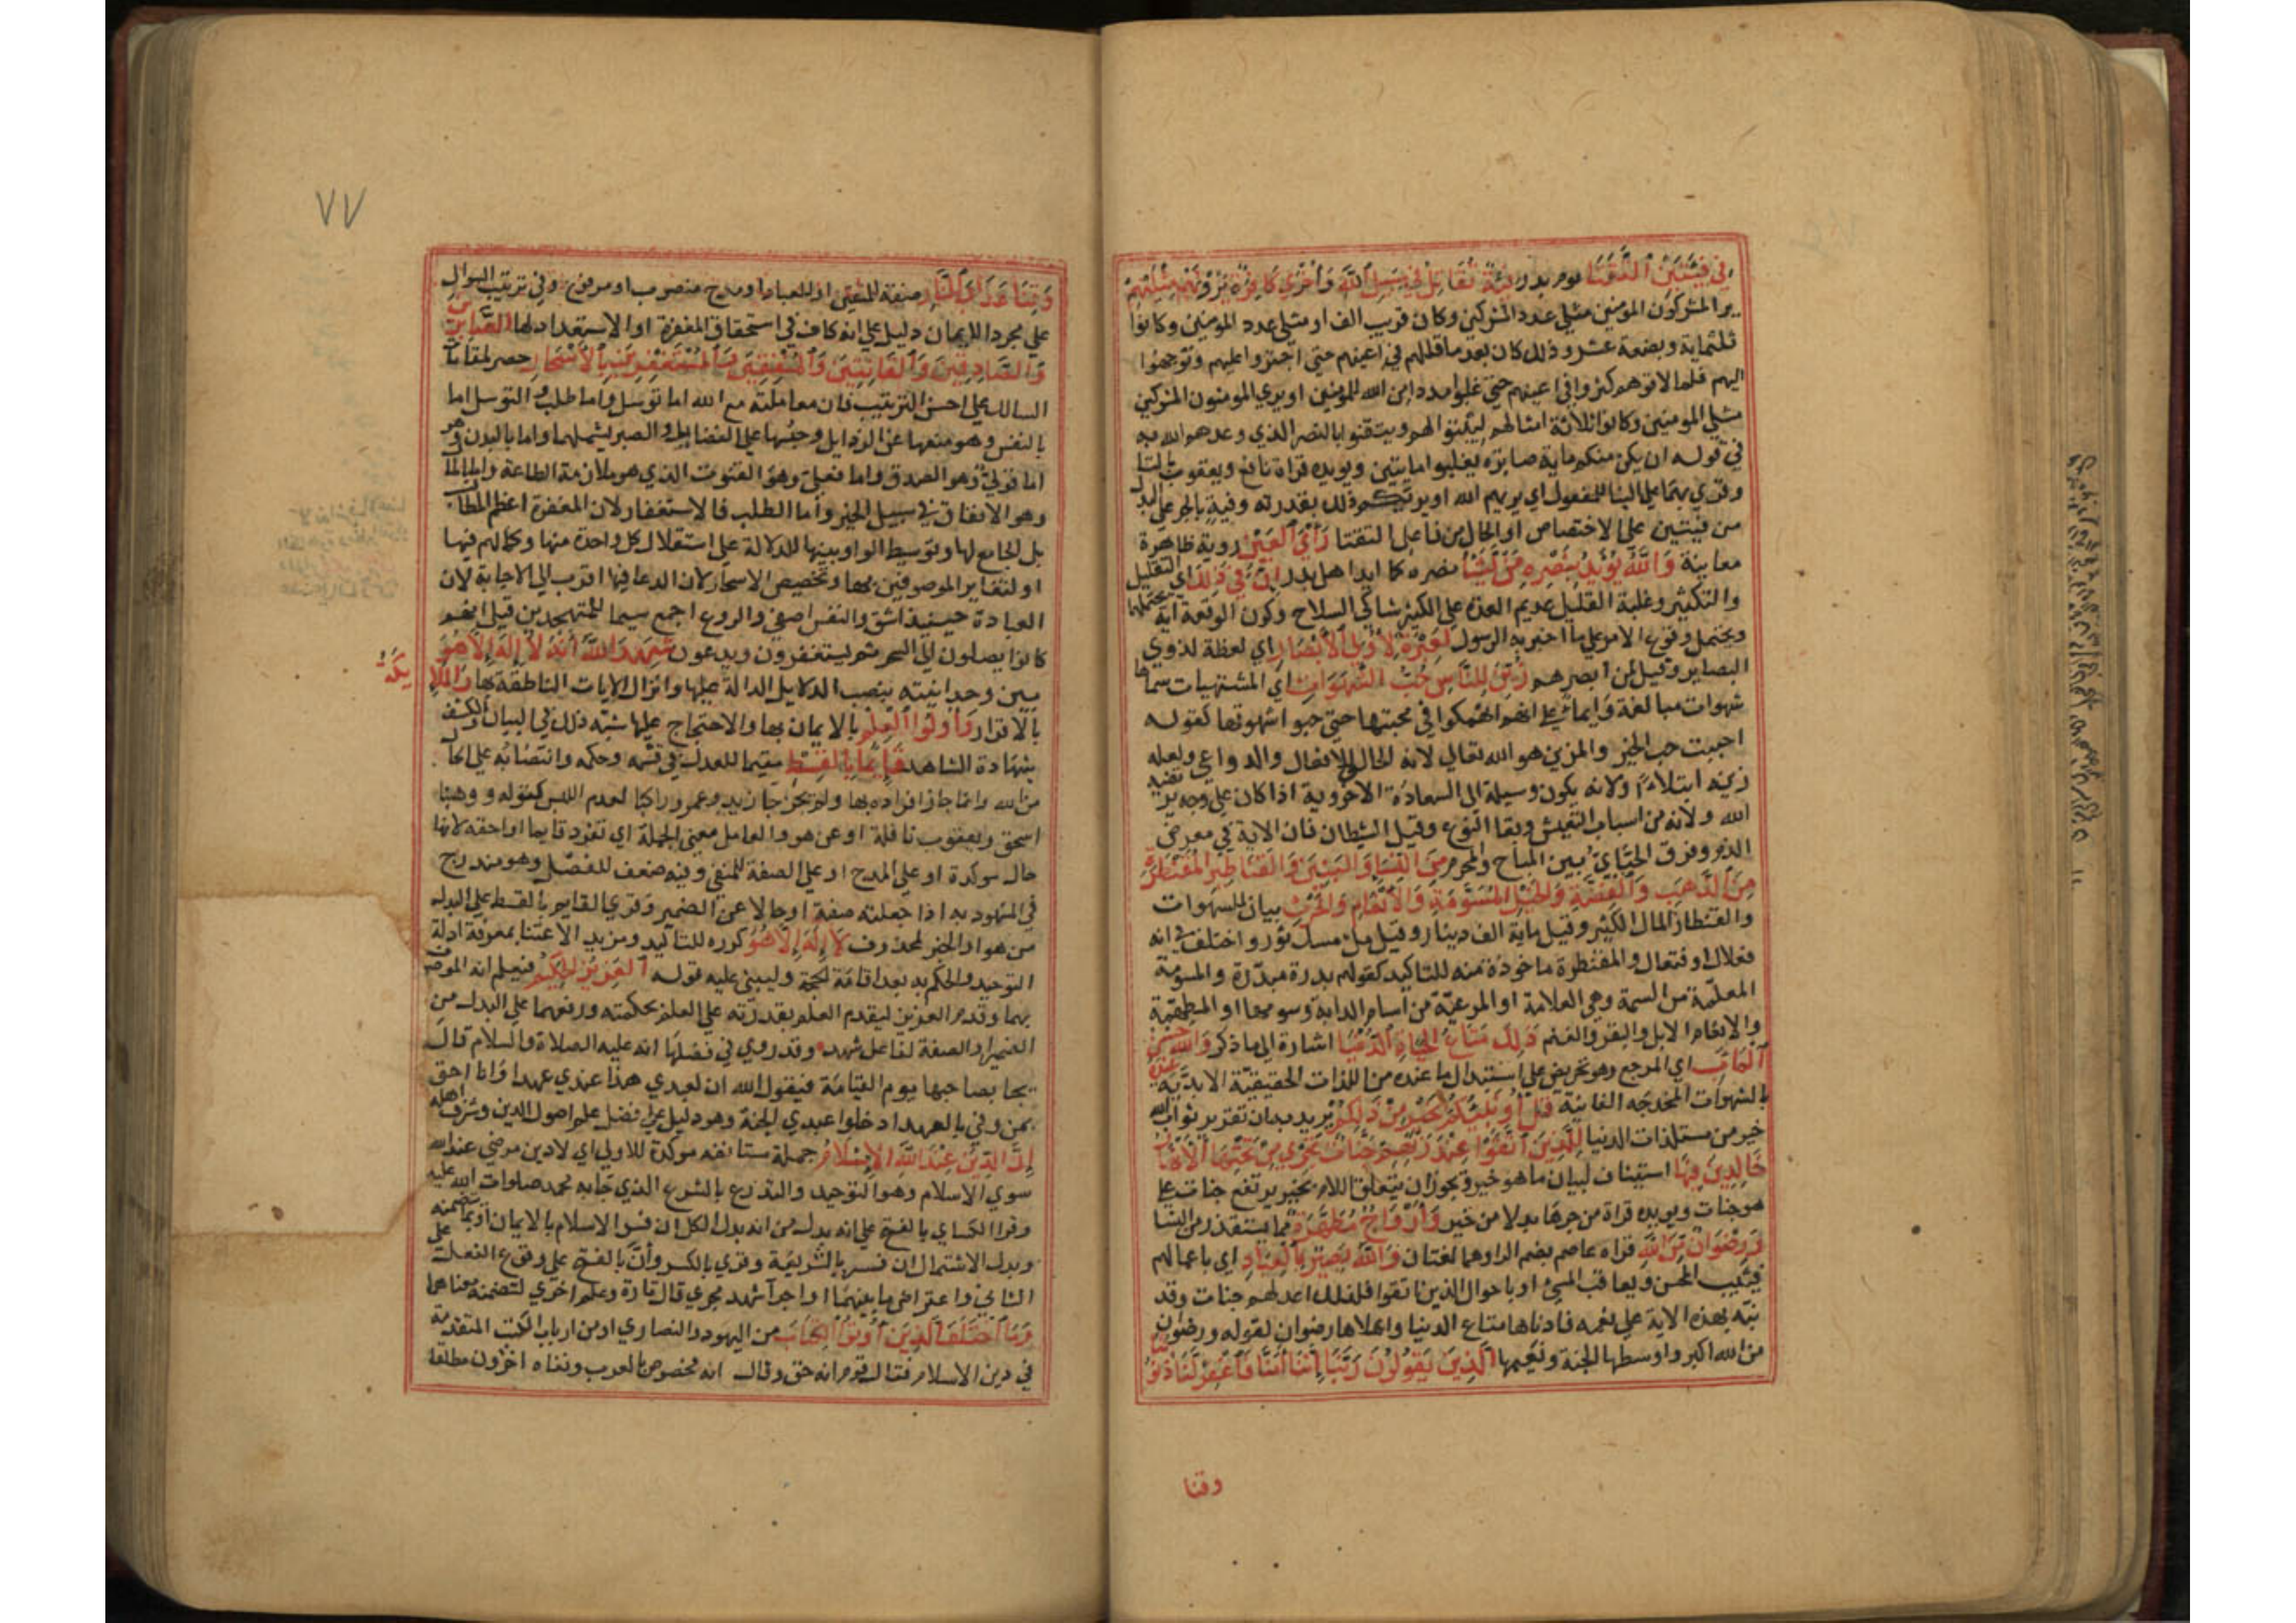 في فئتين التقتا يوم بدر فئة تقاتل في سبيل الله وأخرى كافرة يرونهم مثليهم
يرا المشركون المومنين مثلي عدد المشركين وكان قريب الف او مثلي عدد المومنين وكانوا
ثلثماية وبضعة عشر وذلك كان بعد ما قللهم في اعينهم حتى اجتروا عليهم وتوجهوا
اليهم فلما لاقوهم كثروا في اعينهم حتى غلبوا مددا من الله للمؤمنين او يري المومنون المشركين
مثلي المومنين وكانوا ثلاثة امثالهم ليثبتوا لهم ويتيقنوا بالنصر الذي وعدهم الله به
في قوله ان يكن منكم ماية صابرة يغلبوا مايتين ويويده قراة نافع ويعقوب بالتا
وقري بهما على البنا للمفعول اي يريهم الله او يريكم ذلك بقدرته وفية بالجر على البدل
من فيتين على الاختصاص او الحال من فاعل التقتا رأي العين روية ظاهرة
معاينة والله يؤيد بنصره من يشا نصره كما ايد اهل بدر ان في ذلك اي التقليل
والتكثير وغلبة القليل عديم العدة على الكثير شاكي السلاح وكون الوقعة اية يحتملها
ويحتمل وقوع الامر على ما اخبر به الرسول لعبرة لأولي الأبصار اي لعظة لذوي
البصاير وقيل لمن ابصرهم زين للناس حب الشهوات اي المشتهيات سماها
شهوات مبالغة وايماء على انهم انهمكوا في محبتها حتى حبوا شهوتها كقوله
احببت حب الخير والمزين هو الله تعالي لانه الخالق للافعال والدواعي ولعله
زينه ابتلاء ولانه يكون وسيلة الى السعادة الاخروية اذا كان على وجه يرتضيه
الله ولانه من اسباب التعيش وبقا النوع وقيل الشيطان فان الاية في معرض
الذم وفرق الجبايي بين المباح والمحرم من النسا والبنين والقناطير المقنطرة
من الذهب والفضة والخيل المسومة والأنعام والحرث بيان للشهوات
والقنطار المال الكثير وقيل ماية الف دينار وقيل ملء مسك ثور واختلف في انه
فعلال او فنعال والمقنطرة ماخوذة منه للتاكيد كقولهم بدرة مبدرة والمسومة
المعلمة من السمة وهي العلامة او المرعية من اسام الدابة وسومها او المطهمة
والانعام الابل والبقر والغنم ذلك متاع الحياة الدنيا اشارة الى ما ذكر والله عنده حسن
المآب اي المرجع وهو تحريض على استبدال ما عنده من اللذات الحقيقية الابدية
بالشهوات المخدجه الفانية قل أونبئكم بخير من ذلكم يريد به ان تقرير ثواب الله
خير من مستلذات الدنيا للذين اتقوا عند ربهم جنات تجري من تحتها الأنهار
خالدين فيها استيناف لبيان ما هو خير ويجوز ان يتعلق اللام بخير يرتفع جنات على
هو جنات ويويده قراة من جرها بدلا من خير وأزواج مطهرة مما يستقذر من النسا
ورضوان من الله قراه عاصم بضم الرا وهما لغتان والله بصير بالعباد اي باعمالهم
فيثيب المحسن ويعاقب المسئ او باحوال الذين اتقوا فلذلك اعد لهم جنات وقد
نبه بهذه الاية على نعمه فادناها متاع الدنيا واعلاها رضوان لقوله ورضوان
من الله اكبر واوسطها الجنة ونعيمها الذين يقولون ربنا إننا آمنا فاغفر لنا ذنوبنا
وقنا
٧٧
وقنا عذاب النار صفة للمتقين او للعباد او مدح منصوب او مرفوع وفي ترتيب السوال
على مجرد الايمان دليل على انه كاف في استحقاق المغفرة او الاستعداد لها الصابرين
والصادقين والقانتين والمنفقين والمستغفرين بالأسحار حصر لمقامات
السالك على احسن الترتيب فان معاملته مع الله اما توسل واما طلب والتوسل اما
بالنفس وهو منعها عن الرذايل وحبسها على الفضايل والصبر يشملهما واما بالبدن وهو
اما قولي وهو الصدق واما فعلي وهو القنوت الذي هو ملازمة الطاعة واما بالمال
وهو الانفاق في سبيل الخير واما الطلب فالاستغفار لان المغفرة اعظم المطالب
بل الجامع لها وتوسيط الواو بينها للدلالة على استقلال كل واحدة منها وكمالهم فيها
او لتغاير الموصوفين بها وتخصيص الاسحار لان الدعا فيها اقرب الي الاجابة لان
العبادة حينيذ اشق والنفس اصفي والروع اجمع سيما للمتهجدين قيل انهم
كانوا يصلون الى السحر ثم يستغفرون ويدعون شهد الله أنه لا إله إلا هو
بين وحدانيته بنصب الدلايل الدالة عليها وانزال الايات الناطقة بها والملا
ئكة
بالاقرار وأولوا العلم بالايمان بها والاحتجاج عليها شبه ذلك في البيان والكشف
بشهادة الشاهد قائما بالقسط مقيما للعدل في قسمه وحكمه وانتصابه على الحال
من الله وانما جاز افراده بها ولم يجز جا زيد وعمرو راكبا لعدم اللبس كقوله ووهبنا
اسحق ويعقوب نافلة او عن هو والعامل معنى الجملة اي تفرد قايما او احقه لانها
حال موكدة او على المدح او على الصفة للمنفي وفيه ضعف للفصل وهو مندرج
في المشهود به اذا جعلته صفة او حالا عن الضمير وقري القايم بالقسط على البدل
من هو او الخبر لمحذوف لا إله إلا هو كرره للتاكيد ومزيد الاعتنا بمعرفة ادلة
التوحيد والحكم به بعد اقامة الحجة وليبني عليه قوله العزيز الحكيم فيعلم انه الموصوف
بهما وقدم العزيز ليقدم العلم بقدرته على العلم بحكمته ورفعهما على البدل من
الضمير او الصفة لفاعل شهد وقد روي في فضلها انه عليه الصلاة والسلام قال
يجا بصاحبها يوم القيامة فيقول الله ان لعبدي هذا عندي عهدا وانا احق
بمن وفي بالعهد ادخلوا عبدي الجنة وهو دليل على فضل علم اصول الدين وشرف اهله
إن الدين عند الله الإسلام جملة مستانفه موكدة للاولى اي لا دين مرضي عند الله
سوي الاسلام وهو التوحيد والتدرع بالشرع الذي جا به محمد صلوات الله عليه
وقرا الكساي بالفتح على انه بدل من انه بدل الكل ان فسر الاسلام بالايمان او بما يتضمنه
وبدل الاشتمال ان فسر بالشريعة وقري بالكسر وأن بالفتح على وقوع الفعل على
الثاني واعتراض ما بينهما او اجرا شهد مجري قال تارة وعلم اخري لتضمنه معناهما
وما اختلف الذين أوتوا الكتاب من اليهود والنصاري او من ارباب الكتب المتقدمة
في دين الاسلام فقال قوم انه حق وقال انه مخصوص بالعرب ونفاه اخرون مطلقا